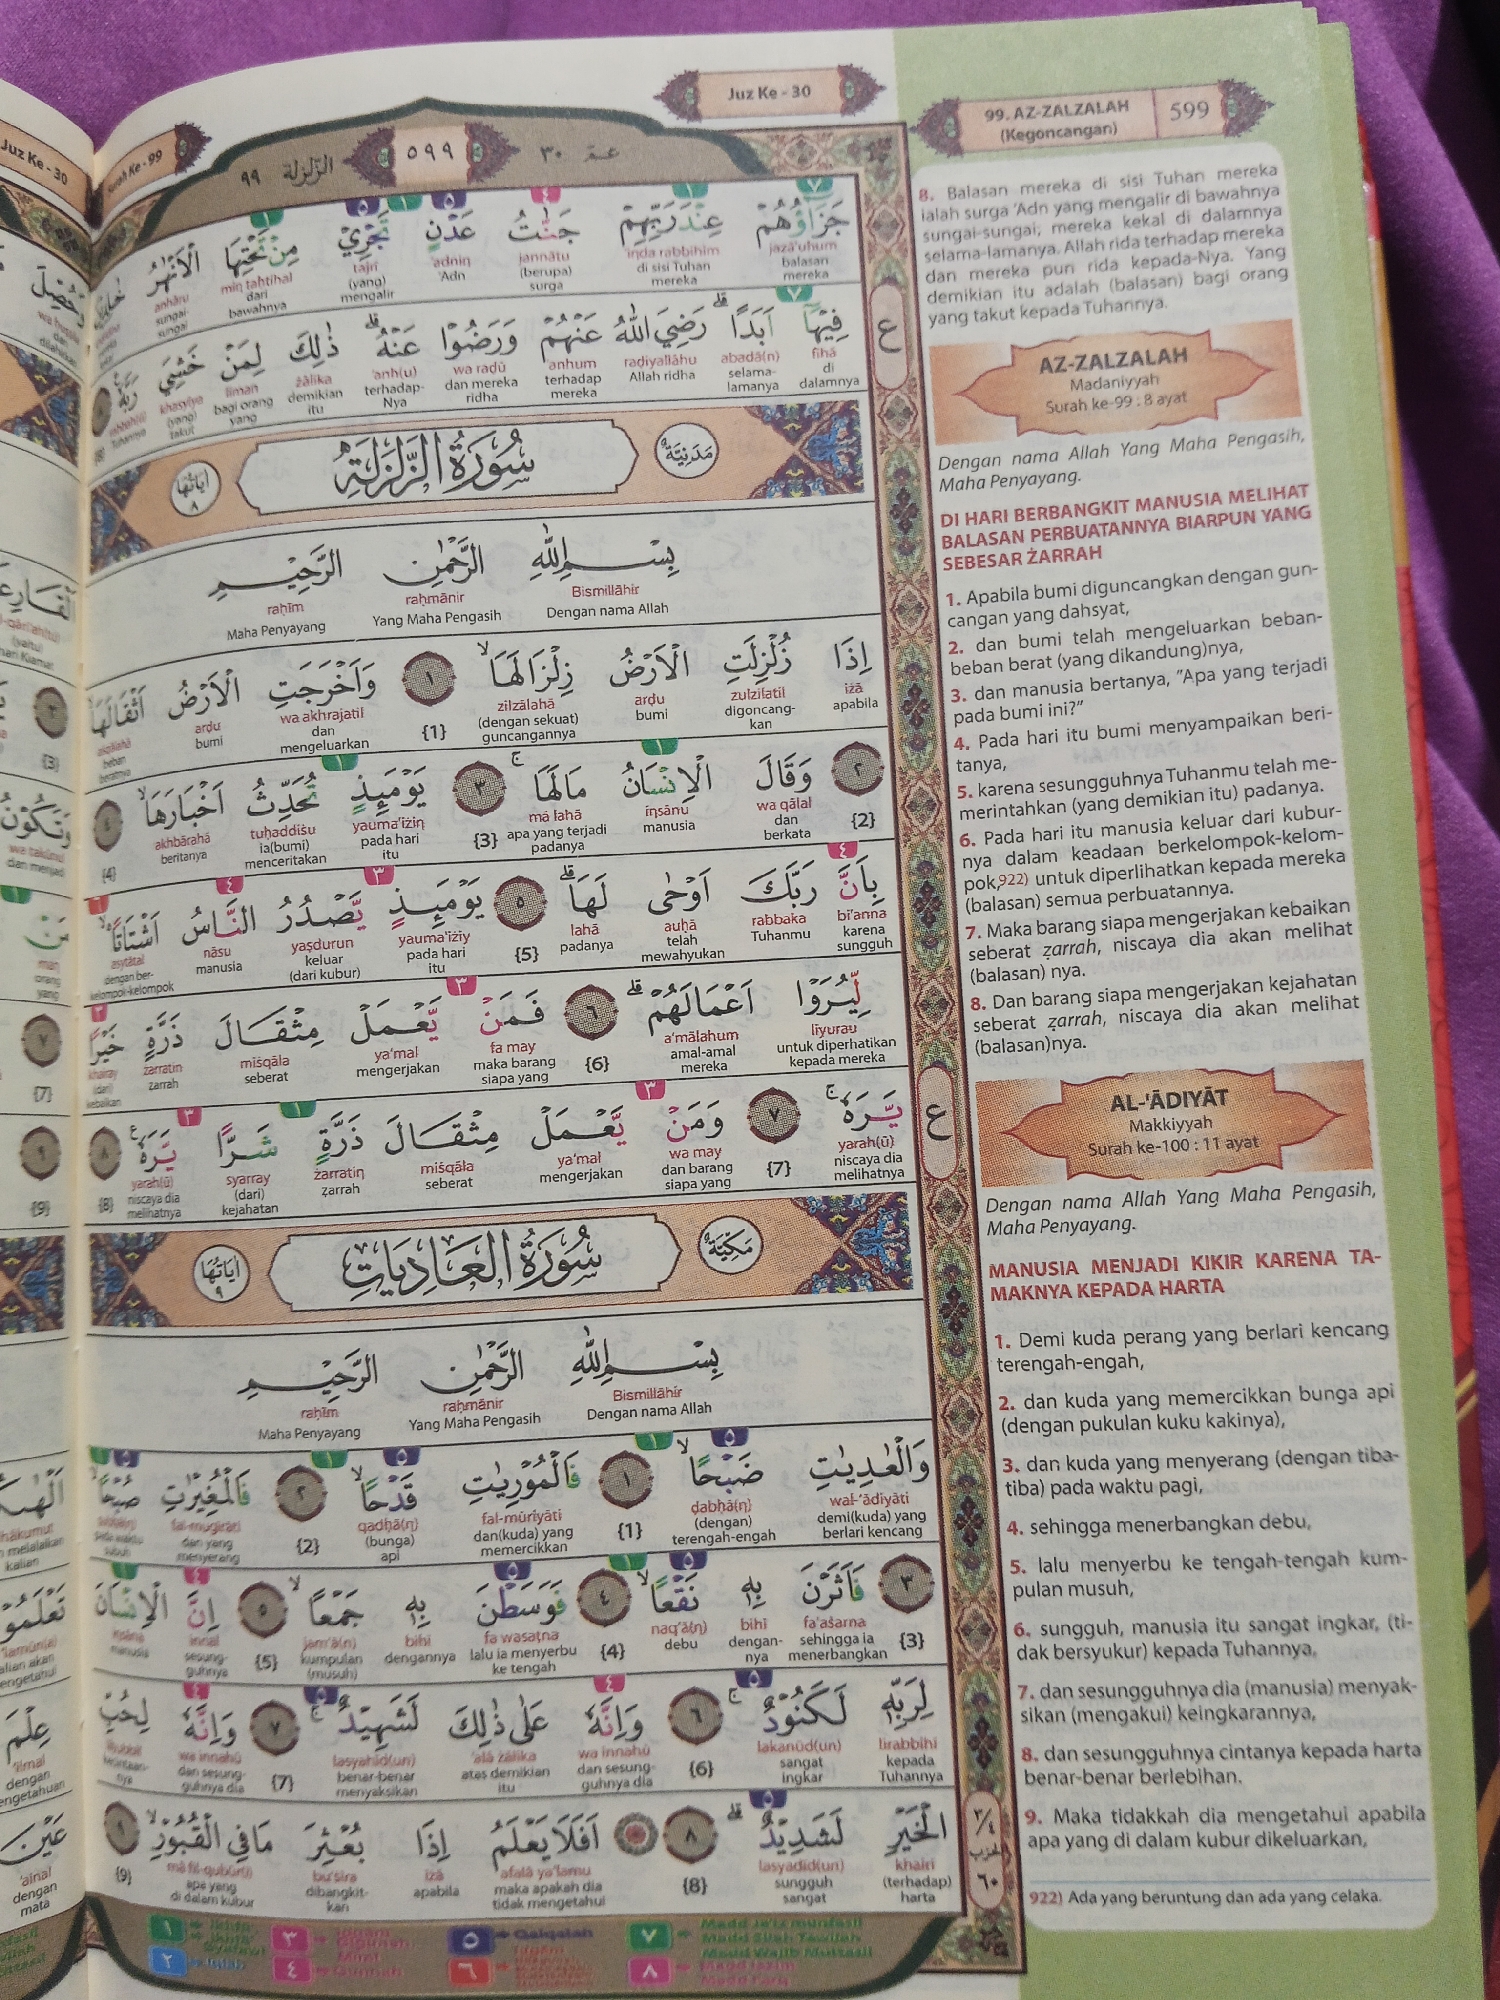 Juz Ke - 30
Surah Ke - 99
Juz Ke - 30
99. AZ-ZALZALAH
(Kegoncangan)
599
الزلزلة ٩٩
٥٩٩
عم ٣٠
جَزَاۤؤُهُمْ عِنْدَ رَبِّهِمْ جَنّٰتُ عَدْنٍ تَجْرِيْ مِنْ تَحْتِهَا الْاَنْهٰرُ
jazā'uhum inda rabbihim jannātu 'adnin tajrī min tahtihal anhāru
balasan mereka di sisi Tuhan mereka (berupa) surga 'Adn (yang) mengalir dari bawahnya sungai-sungai
فِيْهَآ اَبَدًا ۗ رَضِيَ اللّٰهُ عَنْهُمْ وَرَضُوْا عَنْهُ ۗ ذٰلِكَ لِمَنْ خَشِيَ رَبَّهٗ
fīhā abadā(n) raḍiyallāhu 'anhum wa raḍū 'anh(u) żālika liman khasyiya
di dalamnya selama-lamanya Allah ridha terhadap mereka dan mereka ridha terhadap-Nya demikian itu bagi orang yang (yang) takut Tuhannya
مَدَنِيَّةٌ
سُوْرَةُ الزَّلْزَلَةِ
اٰيَاتُهَا ٨
بِسْمِ اللّٰهِ الرَّحْمٰنِ الرَّحِيْمِ
Bismillāhir raḥmānir raḥīm
Dengan nama Allah Yang Maha Pengasih Maha Penyayang
اِذَا زُلْزِلَتِ الْاَرْضُ زِلْزَالَهَا ۙ ١ وَاَخْرَجَتِ الْاَرْضُ اَثْقَالَهَا
iżā zulzilatil arḍu zilzālahā {1} wa akhrajatil arḍu aṡqālahā
apabila digoncangkan bumi (dengan sekuat) guncangannya dan mengeluarkan bumi beban beratnya
٢ وَقَالَ الْاِنْسَانُ مَا لَهَا ۚ ٣ يَوْمَىِٕذٍ تُحَدِّثُ اَخْبَارَهَا ۙ ٤
{2} wa qālal insānu mā lahā {3} yauma'iżin tuḥaddiṡu akhbārahā {4}
dan berkata manusia apa yang terjadi padanya pada hari itu ia(bumi) menceritakan beritanya
بِاَنَّ رَبَّكَ اَوْحٰى لَهَا ۗ ٥ يَوْمَىِٕذٍ يَّصْدُرُ النَّاسُ اَشْتَاتًا ۙ
bi'anna rabbaka auḥā lahā {5} yauma'iżiy yaṣdurun nāsu asytātal
karena sungguh Tuhanmu telah mewahyukan padanya pada hari itu keluar (dari kubur) manusia dengan ber-kelompok-kelompok
لِّيُرَوْا اَعْمَالَهُمْ ۗ ٦ فَمَنْ يَّعْمَلْ مِثْقَالَ ذَرَّةٍ خَيْرًا
liyurau a'mālahum {6} fa may ya'mal miṡqāla żarratin khairay
untuk diperhatikan kepada mereka amal-amal mereka maka barang siapa yang mengerjakan seberat zarrah (dari) kebaikan
يَّرَهٗ ۚ ٧ وَمَنْ يَّعْمَلْ مِثْقَالَ ذَرَّةٍ شَرًّا يَّرَهٗ ࣖ ٨
yarah(ū) {7} wa may ya'mal miṡqāla żarratin syarray yarah(ū) {8}
niscaya dia melihatnya dan barang siapa yang mengerjakan seberat zarrah (dari) kejahatan niscaya dia melihatnya
مَكِّيَّةٌ
سُوْرَةُ الْعَادِيَاتِ
اٰيَاتُهَا ٩
بِسْمِ اللّٰهِ الرَّحْمٰنِ الرَّحِيْمِ
Bismillāhir raḥmānir raḥīm
Dengan nama Allah Yang Maha Pengasih Maha Penyayang
وَالْعٰدِيٰتِ ضَبْحًا ۙ ١ فَالْمُوْرِيٰتِ قَدْحًا ۙ ٢ فَالْمُغِيْرٰتِ صُبْحًا
wal-'ādiyāti ḍabḥā(n) {1} fal-mūriyāti qadḥā(n) {2} fal-mugīrāti
demi(kuda) yang berlari kencang (dengan) terengah-engah dan(kuda) yang memercikkan (bunga) api dan yang menyerang
٣ فَاَثَرْنَ بِهٖ نَقْعًا ۙ ٤ فَوَسَطْنَ بِهٖ جَمْعًا ۙ ٥ اِنَّ الْاِنْسَانَ
{3} fa'aṡarna bihī naq'ā(n) {4} fa wasaṭna bihī jam'ā(n) {5} innal
sehingga ia menerbangkan dengan-nya debu lalu ia menyerbu ke tengah dengannya kumpulan (musuh) sesung-guhnya manusia
لِرَبِّهٖ لَكَنُوْدٌ ۚ ٦ وَاِنَّهٗ عَلٰى ذٰلِكَ لَشَهِيْدٌ ۚ ٧ وَاِنَّهٗ لِحُبِّ
lirabbihī lakanūd(un) {6} wa innahū 'alā żālika lasyahīd(un) {7} wa innahū
kepada Tuhannya sangat ingkar dan sesung-guhnya dia atas demikian itu benar-benar menyaksikan dan sesung-guhnya dia
الْخَيْرِ لَشَدِيْدٌ ۗ ٨ اَفَلَا يَعْلَمُ اِذَا بُعْثِرَ مَا فِى الْقُبُوْرِ ۙ ٩
khairi lasyadīd(un) {8} afalā ya'lamu iżā bu'ṡira mā fil-qubūr(i) {9}
(terhadap) harta sungguh sangat maka apakah dia tidak mengetahui apabila dibangkit-kan apa yang di dalam kubur
٣/٤ الحزب ٦٠
٣
٥ Qalqalah
٧
٢
٤ Gunnah
٦
٨
8. Balasan mereka di sisi Tuhan mereka
ialah surga 'Adn yang mengalir di bawahnya
sungai-sungai; mereka kekal di dalamnya
selama-lamanya. Allah rida terhadap mereka
dan mereka pun rida kepada-Nya. Yang
demikian itu adalah (balasan) bagi orang
yang takut kepada Tuhannya.
AZ-ZALZALAH
Madaniyyah
Surah ke-99 : 8 ayat
Dengan nama Allah Yang Maha Pengasih,
Maha Penyayang.
DI HARI BERBANGKIT MANUSIA MELIHAT
BALASAN PERBUATANNYA BIARPUN YANG
SEBESAR ŻARRAH
1. Apabila bumi diguncangkan dengan gun-
cangan yang dahsyat,
2. dan bumi telah mengeluarkan beban-
beban berat (yang dikandung)nya,
3. dan manusia bertanya, "Apa yang terjadi
pada bumi ini?"
4. Pada hari itu bumi menyampaikan beri-
tanya,
5. karena sesungguhnya Tuhanmu telah me-
merintahkan (yang demikian itu) padanya.
6. Pada hari itu manusia keluar dari kubur-
nya dalam keadaan berkelompok-kelom-
pok,922) untuk diperlihatkan kepada mereka
(balasan) semua perbuatannya.
7. Maka barang siapa mengerjakan kebaikan
seberat zarrah, niscaya dia akan melihat
(balasan) nya.
8. Dan barang siapa mengerjakan kejahatan
seberat zarrah, niscaya dia akan melihat
(balasan)nya.
AL-'ĀDIYĀT
Makkiyyah
Surah ke-100 : 11 ayat
Dengan nama Allah Yang Maha Pengasih,
Maha Penyayang.
MANUSIA MENJADI KIKIR KARENA TA-
MAKNYA KEPADA HARTA
1. Demi kuda perang yang berlari kencang
terengah-engah,
2. dan kuda yang memercikkan bunga api
(dengan pukulan kuku kakinya),
3. dan kuda yang menyerang (dengan tiba-
tiba) pada waktu pagi,
4. sehingga menerbangkan debu,
5. lalu menyerbu ke tengah-tengah kum-
pulan musuh,
6. sungguh, manusia itu sangat ingkar, (ti-
dak bersyukur) kepada Tuhannya,
7. dan sesungguhnya dia (manusia) menyak-
sikan (mengakui) keingkarannya,
8. dan sesungguhnya cintanya kepada harta
benar-benar berlebihan.
9. Maka tidakkah dia mengetahui apabila
apa yang di dalam kubur dikeluarkan,
922) Ada yang beruntung dan ada yang celaka.